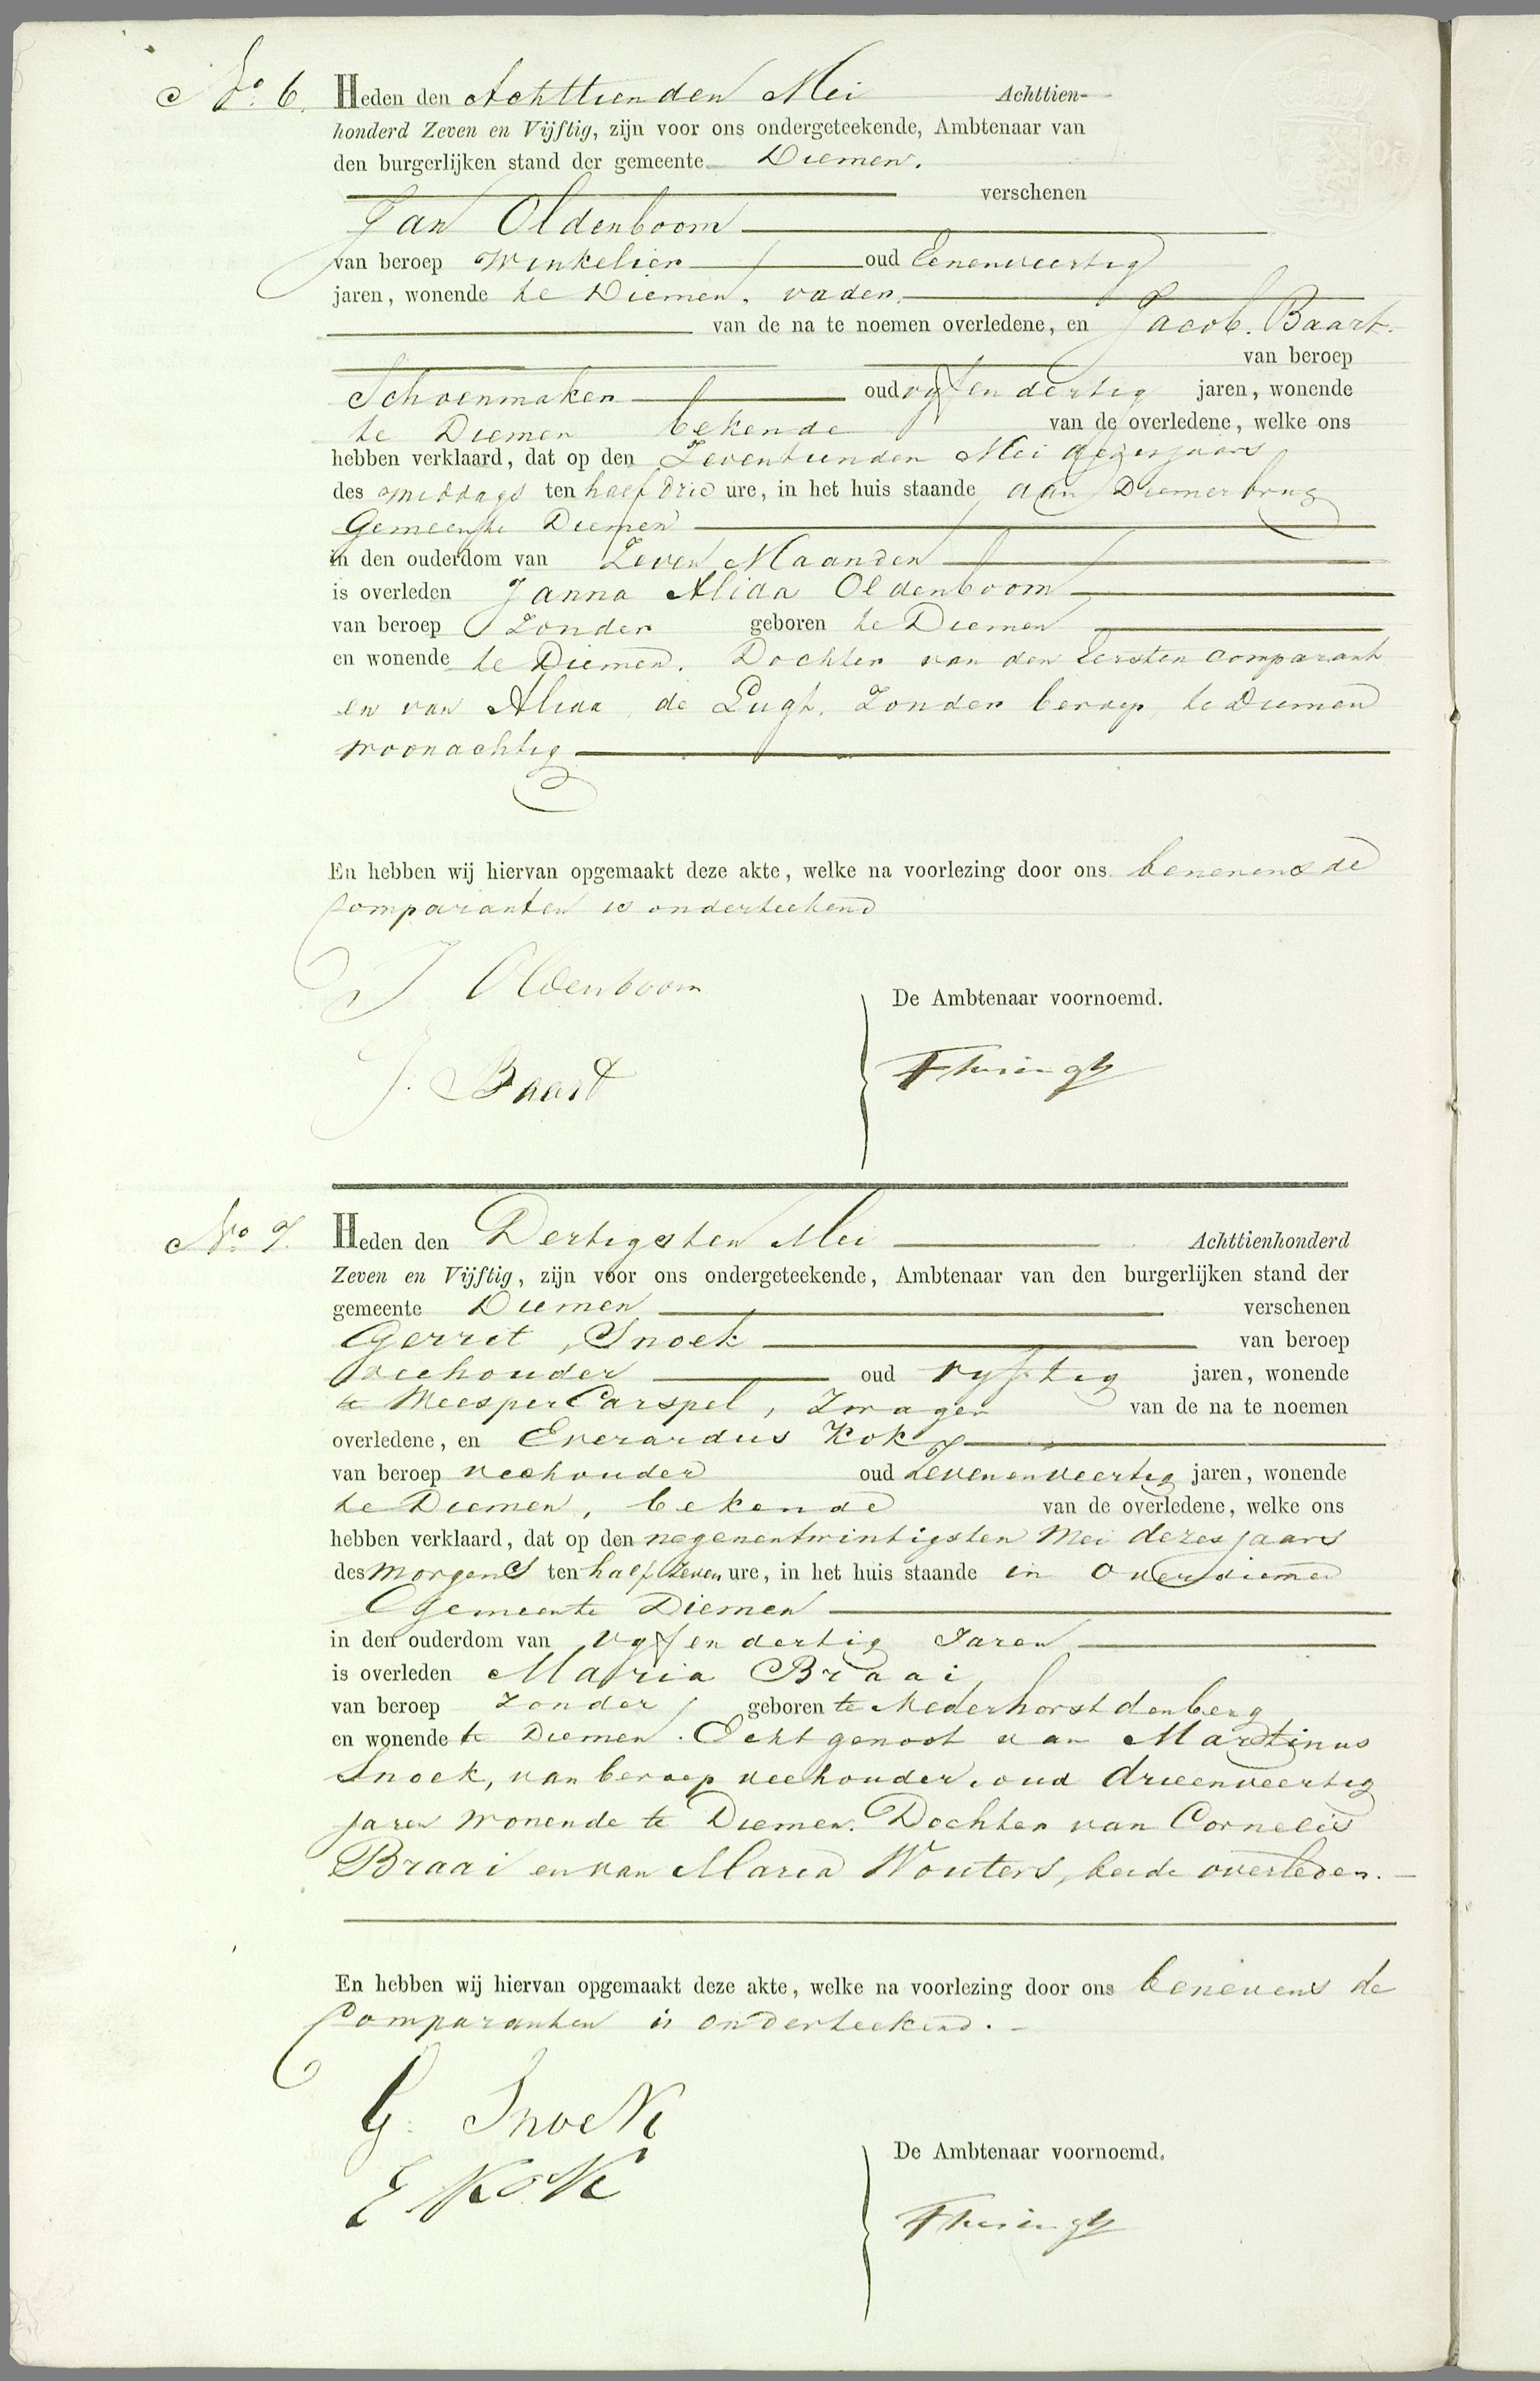 No. 6. Heden den Achttienden Mei Achttien-
honderd Zeven en Vijftig, zijn voor ons ondergeteekende, Ambtenaar van
den burgerlijken stand der gemeente Diemen.
verschenen
Jan Oldenboom
van beroep Winkelier oud Eenenveertig
jaren, wonende te Diemen, vader
van de na te noemen overledene, en Jacob Baart.
van beroep
Schoenmaker oud vyf en dertig jaren, wonende
te Diemen bekende van de overledene, welke ons
hebben verklaard, dat op den Zeventienden Mei dezes jaars
des middags ten half drie ure, in het huis staande aan Diemerbrug
Gemeente Diemen
in den ouderdom van Zeven Maanden
is overleden Janna Alida Oldenboom
van beroep Zonder geboren te Diemen
en wonende te Diemen. Dochter van den Eersten comparant
en van Alida de Lugt, Zonder beroep, te Diemen
woonachtig
En hebben wij hiervan opgemaakt deze akte, welke na voorlezing door ons benevens de
Comparanten is onderteekend
J Oldenboom
De Ambtenaar voornoemd.
J. Baart
No. 7. Heden den Dertigsten Mei Achttienhonderd
Zeven en Vijftig, zijn voor ons ondergeteekende, Ambtenaar van den burgerlijken stand der
gemeente Diemen verschenen
Gerrit Snoek van beroep
veehouder oud vyftig jaren, wonende
te Weesper Carspel, Zwager van de na te noemen
overledene, en Everardus Kok
van beroep veehouder oud Zevenenveertig jaren, wonende
te Diemen, bekende van de overledene, welke ons
hebben verklaard, dat op den negenentwintigsten Mei dezes jaars
des morgens ten half Zeven ure, in het huis staande in Overdiemen
Gemeente Diemen
in den ouderdom van vyf en dertig Jaren
is overleden Maria Braai
van beroep Zonder geboren te Nederhorst den berg
en wonende te Diemen. Echtgenoot van Martinus
Snoek, van beroep veehouder, oud drieenveertig
jaren wonende te Diemen. Dochter van Cornelis
Braai en van Maria Wouters, beide overleden.
En hebben wij hiervan opgemaakt deze akte, welke na voorlezing door ons benevens de
Comparanten is onderteekend.
G. Snoek
De Ambtenaar voornoemd.
E Kok